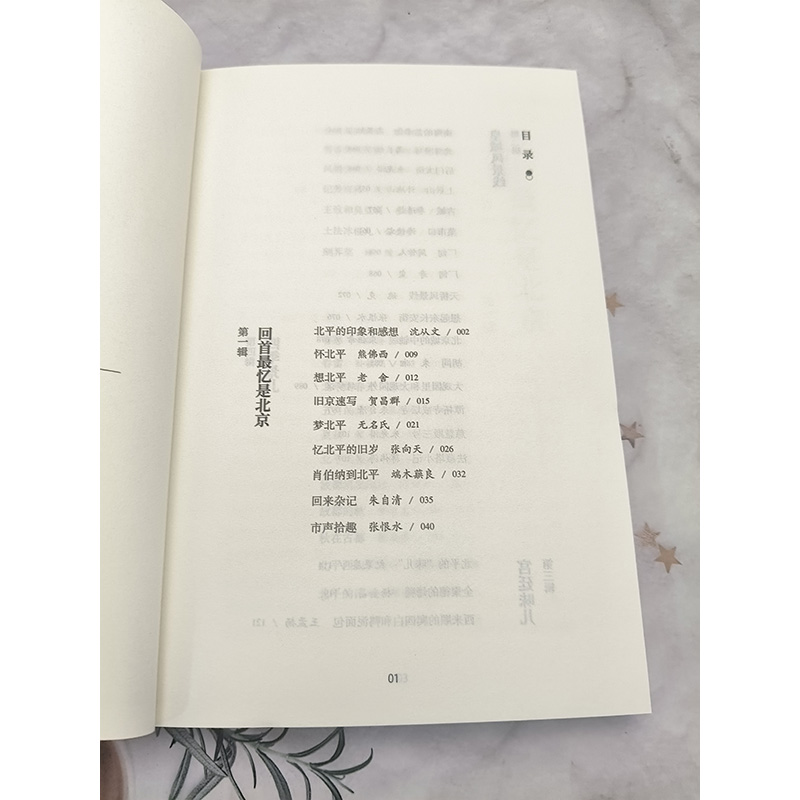 目录
第一辑
回首最忆是北京
北平的印象和感想 沈从文 / 002
怀北平 熊佛西 / 009
想北平 老舍 / 012
旧京速写 贺昌群 / 015
梦北平 无名氏 / 021
忆北平的旧岁 张向天 / 026
肖伯纳到北平 端木蕻良 / 032
回来杂记 朱自清 / 035
市声拾趣 张恨水 / 040
01